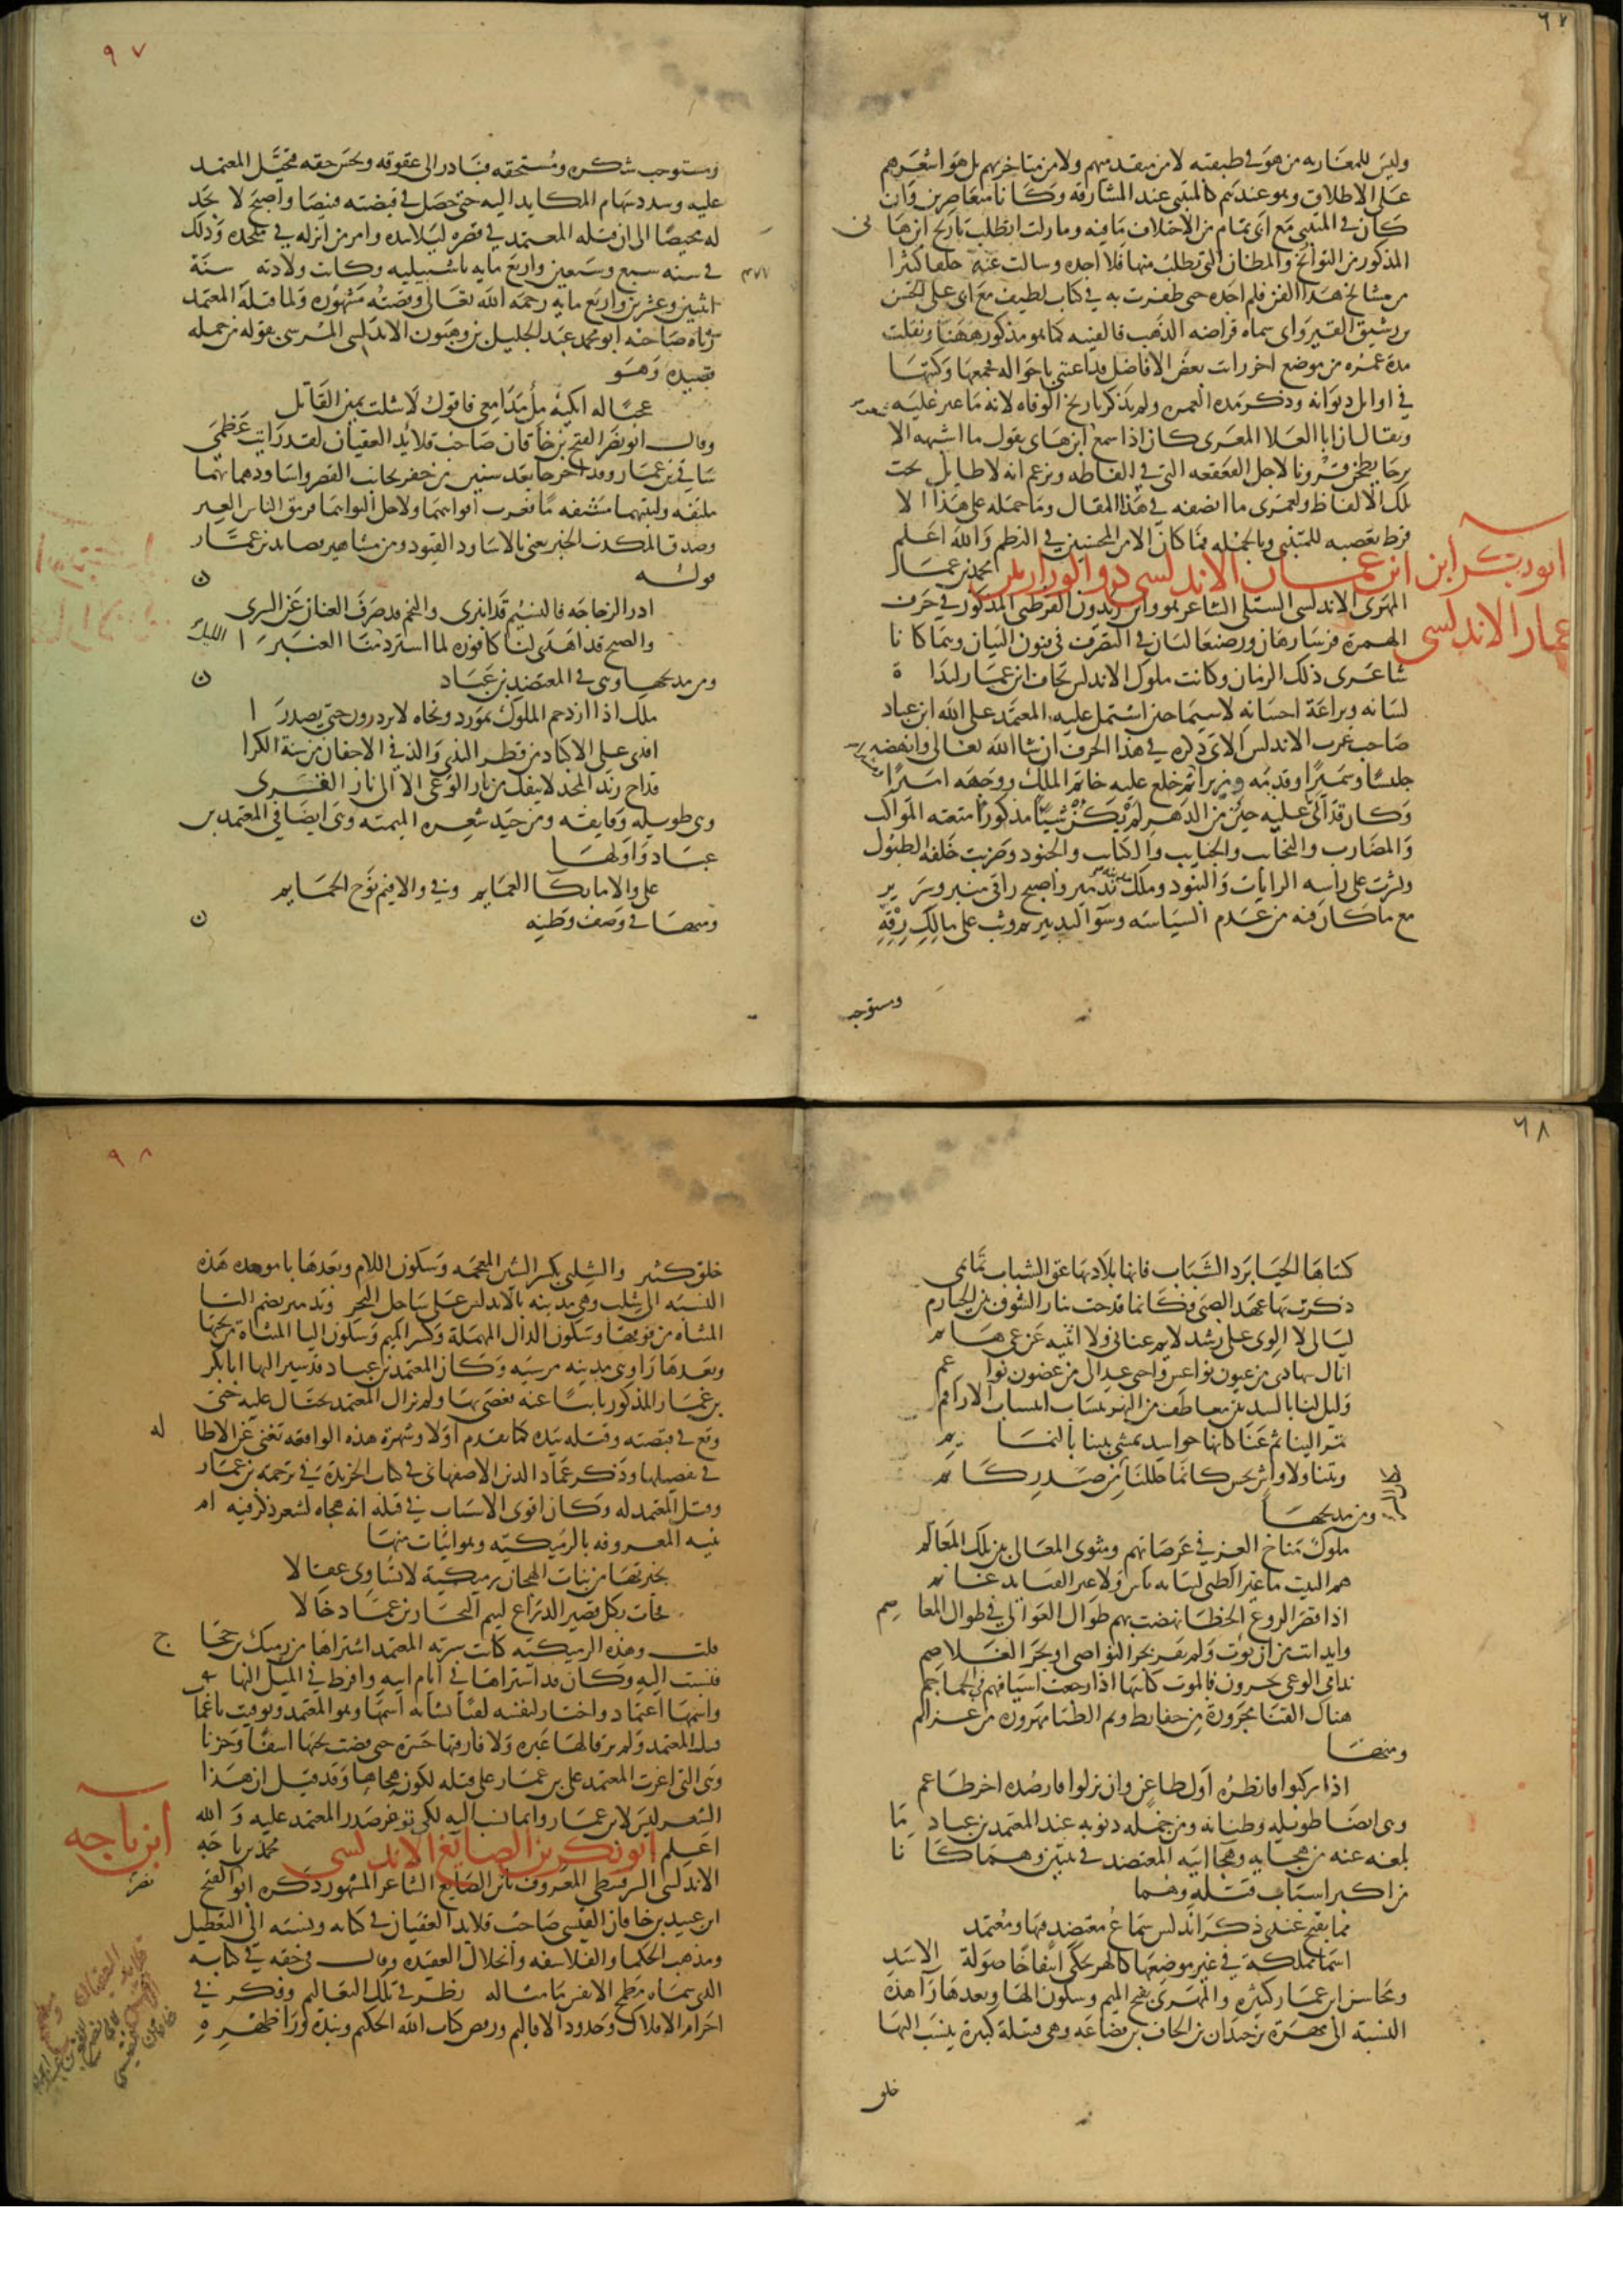 ٦٧
وليس للمغاربه من هو في طبقته لا من متقدميهم ولا من متاخريهم بل هو اشعرهم
على الاطلاق وهو عندهم كالمتنبي عند المشارقة وكانا متعاصرين وان
كان في المتنبي مع ابي تمام من الاختلاف ما فيه وما زلت اتطلب تاريخ ابن هاني
المذكور من التواريخ والمظان التي يطلب منها فلا اجده وسالت عنه خلقا كثيرا
من مشايخ هذا الفن فلم اجده حتى ظفرت به في كتاب لطيف مع ابي على الحسن
بن رشيق القيرواني سماه قراضه الذهب فالفيته كما هو مذكور ههنا ونقلت
مدة عمره من موضع اخر رايت بعض الافاضل قد اعتنى باحواله فجمعها وكتبها
في اوايل ديوانه وذكر مدة العمر ولم يذكر تاريخ الوفاه لانه ما عثر عليه
ويقال ان ابا العلا المعري كان اذا سمع ابن هاي يقول ما اشبهه الا
برحا يطحن قرونا لاجل القعقعه التي في الفاظه ويزعم انه لا طايل تحت
تلك الالفاظ ولعمري ما انصفه في هذا المقال وما حمله على هذا الا
فرط تعصبه للمتنبي وبالجمله فما كان الا من المحسنين في النظم والله اعلم
ابو بكر ابن عمار الاندلسي ذو الوزارتين محمد بن عمار
ابو بكر ابن
عمار الاندلسي
المهري الاندلسي الشلبي الشاعر هو وابن زيدون القرطبي المذكور في حرف
الهمزة فرسا رهان ورضيعا لبان في التصرف في فنون البيان وهما كانا
شاعري ذلك الزمان وكانت ملوك الاندلس تخاف ابن عمار لبذاة
لسانه وبراعة احسانه لاسيما حين اشتمل عليه المعتمد على الله ابن عباد
صاحب غرب الاندلس الاتي ذكره في هذا الحرف ان شا الله تعالى وانهضه
جليسا وسميرا وقدمه وزيرا ثم خلع عليه خاتم الملك ووجهه اميرا
وكان قد اتى عليه حين من الدهر لم يكن شيئا مذكورا فتبعته المواكب
والمضارب والنجايب والجنايب والكتايب والجنود وضربت خلفه الطبول
ونشرت على راسه الرايات والبنود وملك تدمير واصبح راقى منبر وسرير
مع ما كان فيه من عدم السياسه وسوء التدبير ثم وثب على مالك رقه
ومستوجب
٩٧
ومستوجب شكره ومستحقه فبادر الى عقوقه وبخس حقه فتحيل المعتمد
عليه وسدد سهام المكايد اليه حتى حصل في قبضته قنيصا واصبح لا يجد
له محيصا الى ان قتله المعتمد في قصره ليلا بيده وامر من انزله في ملحده وذلك
في سنه سبع وسبعين واربع مايه باشبيليه وكانت ولادته سنة
٤٧٧
اثنين وعشرين واربع مايه رحمه الله تعالى وقصته مشهوره ولما قتله المعتمد
رثاه صاحبه ابو محمد عبد الجليل بن وهبون الاندلسي المرسي بقوله من جمله
قصيده وهو
عجبا له ابكيه مل مدامعي فاقول لا شلت يمين القاتل
وقال ابو نصر الفتح بن خاقان صاحب قلايد العقيان لقد رايت عظمي
ساقي بن عمار وقد اخرجا بعد سنين من حفر بجانب القصر واساودهما بهما
ملتفه ولبتهما مشتفه ما فغرت افواههما ولا حل التواهما فرمق الناس العبر
وصدق المكذب الخبر يعني بالاساود القيود ومن مشاهير قصايد بن عمار
قوله
ادر الزجاجه فالنسيم قد انبرى والنجم قد صرف العنان عن السرى
والصبح قد اهدى لنا كافوره لما استرد الليل منا العنبرا
ومن مديحها وهي في المعتضد بن عباد
ملك اذا ازدحم الملوك بمورد ونحاه لا يردون حتى يصدرا
اندى على الاكباد من قطر الندى والذ في الاجفان من سنة الكرا
قداح زند المجد لا ينفك من نار الوغى الا الى نار القرى
وهي طويله وفايقه ومن جيد شعره الميميه وهي ايضا في المعتمد بن
عباد واولها
علي والا ما بكا الغمايم وفي والا فيم نوح الحمايم
ومنها في وصف وطنه
٦٨
كساها الحيا برد الشباب فانها بلاد بها عق الشباب تمايمي
ذكرت بها عهد الصبى فكانما قدحت بنار الشوق بين الحيازم
ليالي لا الوي على رشد لايم عناني ولا اثنيه عن غي هايم
انال سهادي من عيون نواعس واجني عذابي من غصون نواعم
وليل لنا بالسد بين معاطف من النهر ينساب انسياب الاراقم
تمر الينا ثم عنا كانها حواسد تمشي بيننا بالنمايم
وبتنا ولا واش يحس كاننا حللنا من صدر كاتم
ومن مديحها
ملوك مناخ العز في عرصاتهم ومثوى المعالي بين تلك المعالم
هم البيت ما غير الظبى لبنايه باس ولا غير القنا بدعايم
اذا قصر الروع الخطا نهضت بهم طوال العوالي في طوال المعاصم
وايد ابت من ان توب ولم تفز بجز النواصي او بحز الغلاصم
ندامى الوغى يجرون فالموت كاسها اذا رجعت اسيافهم في الجماجم
هناك القنا مجرورة من حفايظ وثم الظبا مهزوزه من عزايم
ومنها
اذا ركبوا فانظره اول طاعن وان نزلوا فارصده اخر طاعم
وهي ايضا طويله وطنانه ومن جمله ذنوبه عند المعتمد بن عباد ما
بلغه عنه من هجايه وهجا ابيه المعتضد في بيتين وهما كانا
من اكبر اسباب قتله وهما
مما يقبح عندي ذكر اندلس سماع معتضد فيها ومعتمد
اسما مملكة في غير موضعها كالهر يحكي انتفاخا صولة الاسد
ومحاسن ابن عمار كثيره والمهري بفتح الميم وسكون الها وبعدها را هذه
النسبة الى مهرة بن حيدان بن الحاف بن قضاعه وهي قبيلة كبيرة ينسب اليها
خلق
٩٨
خلق كثير والشلبي بكسر الشين المعجمه وسكون اللام وبعدها با موحده هذه
النسبه الى شلب وهي مدينه بالاندلس على ساحل البحر وتدمير بضم التا
المثناه من فوقها وسكون الدال المهملة وكسر الميم وسكون اليا المثناه من تحتها
وبعدها را وهي مدينه مرسيه وكان المعتمد بن عباد قد سير اليها ابا بكر
بن عمار المذكور نايبا عنه فعصى بها ولم يزال المعتمد يحتال عليه حتى
وقع في قبضته وقتله بيده كما تقدم اولا وشهرة هذه الواقعه تغني عن الاطاله
في تفصيلها وذكر عماد الدين الاصفهاني في كتاب الخريدة في ترجمة بن عمار
وقتل المعتمد له وكان اقوى الاسباب في قتله انه هجاه لشعر ذكر فيه ام
بنيه المعروفه بالرميكيه وهو ابيات منها
تخيرتها من بنات الهجان رميكية لا تساوي عقالا
فجات بكل قصير الذراع ليم النجار بن عم وخالا
قلت وهذه الرميكيه كانت سرية المعتمد اشتراها من رميك بن حجاج
فنسبت اليه وكان قد اشتراها في ايام ابيه وافرط في الميل اليها
واسمها اعتماد واختار لنفسه لقبا اسمها وهو المعتمد وتوفيت باغمات
قبل المعتمد ولم ترقا لها عبره ولا فارقها حسره حتى قضت نحبها اسفا وحزنا
وهي التي اغرت المعتمد على بن عمار على قتله لكونه هجاها وقد قيل ان هذا
الشعر ليس لابن عمار وانما نسب اليه لكي توغر صدر المعتمد عليه والله
اعلم ابو بكر بن الصايغ الاندلسي محمد بن باجه
ابن باجه
الاندلسي السرقسطي المعروف بابن الصايغ الشاعر المشهور ذكره ابو الفتح
نصر
ابن عبيد بن خاقان القيسي صاحب قلايد العقيان في كتابه ونسبه الى التعطيل
ومذهب الحكما والفلاسفه وانحلال العقيده وقال في حقه في كتابه
الذي سماه مطمح الانفس ما مثاله نظر في تلك التعاليم وفكر في
اجرام الافلاك وحدود الاقاليم ورفض كتاب الله الحكيم ونبذه ورا ظهره